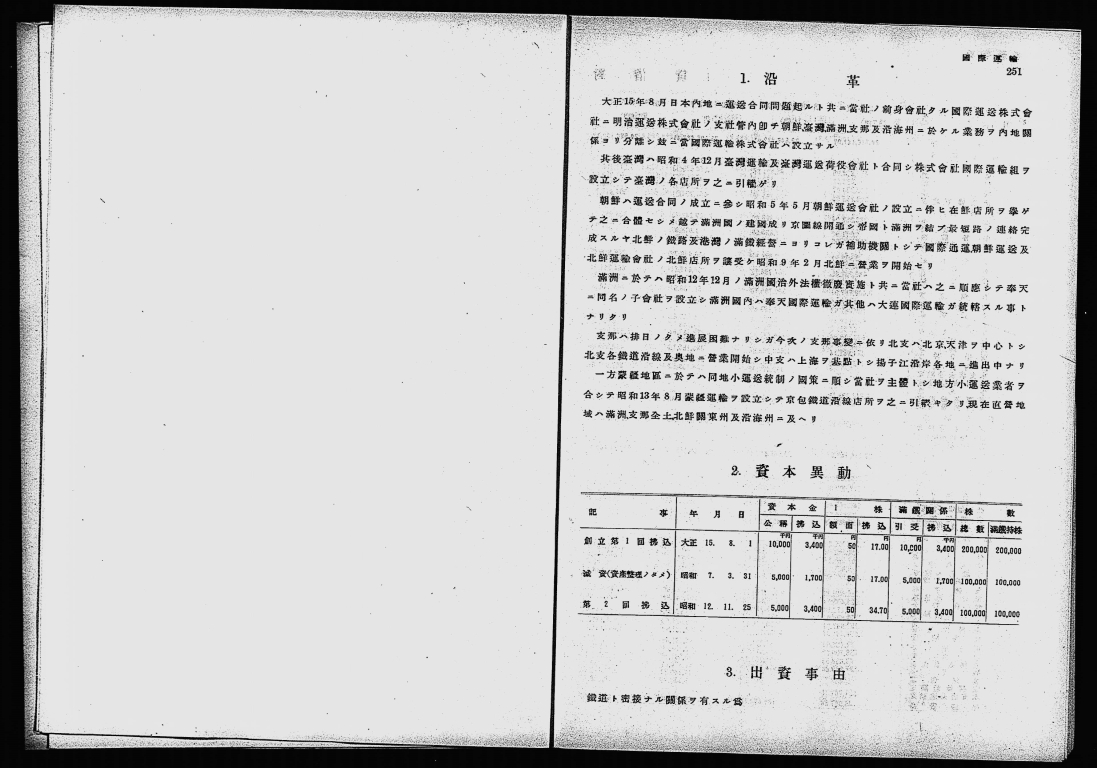 國際運輸
251
1. 沿革
大正15年8月日本內地ニ運送合同問題起ルト共ニ當社ノ前身會社タル國際運送株式會
社ニ明治運送株式會社ノ支社管內卽チ朝鮮臺灣滿洲支那及沿海州ニ於ケル業務ヲ內地關
係ヨリ分離シ玆ニ當國際運輸株式會社ハ設立サル
其後臺灣ハ昭和4年12月臺灣運輸及臺灣運送荷役會社ト合同シ株式會社國際運輸組ヲ
設立シテ臺灣ノ各店所ヲ之ニ引繼ゲリ
朝鮮ハ運送合同ノ成立ニ參シ昭和5年5月朝鮮運送會社ノ設立ニ伴ヒ在鮮店所ヲ擧ゲ
テ之ニ合體セシメ越テ滿洲國ノ建國成リ京圖線開通シ帝國ト滿洲ヲ結ブ最短路ノ連絡完
成スルヤ北鮮ノ鐵路及港灣ノ滿鐵經營ニヨリコレガ補助機關トシテ國際通運朝鮮運送及
北鮮運輸會社ノ北鮮店所ヲ讓受ケ昭和9年2月北鮮ニ營業ヲ開始セリ
滿洲ニ於テハ昭和12年12月ノ滿洲國治外法權撤廢實施ト共ニ當社ハ之ニ順應シテ奉天
ニ同名ノ子會社ヲ設立シ滿洲國內ハ奉天國際運輸ガ其他ハ大連國際運輸ガ統轄スル事ト
ナリタリ
支那ハ排日ノタメ進展困難ナリシガ今次ノ支那事變ニ依リ北支ハ北京天津ヲ中心トシ
北支各鐵道沿線及奧地ニ營業開始シ中支ハ上海ヲ基點トシ揚子江沿岸各地ニ進出中ナリ
一方蒙疆地區ニ於テハ同地小運送統制ノ國策ニ順シ當社ヲ主體トシ地方小運送業者ヲ
合シテ昭和13年8月蒙疆運輸ヲ設立シテ京包鐵道沿線店所ヲ之ニ引繼キタリ現在直營地
域ハ滿洲支那全土北鮮關東州及沿海州ニ及ヘリ
2. 資本異動
記事 年月日 資本金 1株 滿鐵關係 株數
公稱 拂込 額面 拂込 引受 拂込 總數 滿鐵持株
千円 千円 円 円 円 千円
創立第1回拂込 大正 15. 8. 1 10,000 3,400 50 17.00 10,000 3,400 200,000 200,000
減資(資産整理ノタメ) 昭和 7. 3. 31 5,000 1,700 50 17.00 5,000 1,700 100,000 100,000
第2回拂込 昭和 12. 11. 25 5,000 3,400 50 34.70 5,000 3,400 100,000 100,000
3. 出資事由
鐵道ト密接ナル關係ヲ有スル爲